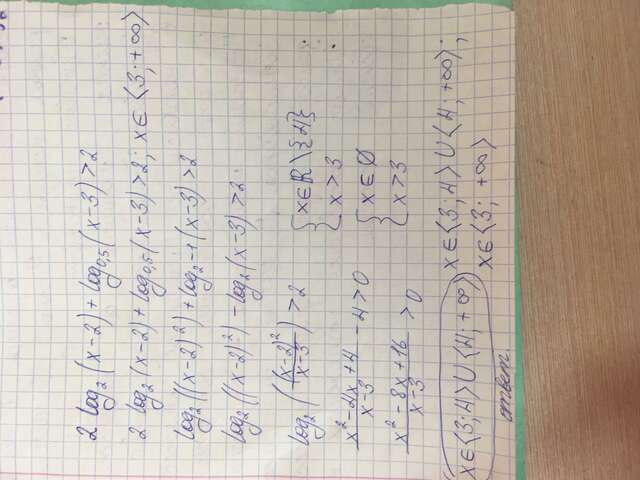 2 log₀ ₂ (x-2) + log₀,₅ (x-3) > 2
2 log₂ (x-2) + log₀,₅ (x-3) > 2; x ∈ ⟨3; +∞⟩
log₂ ((x-2)²) + log₂-1 (x-3) > 2
log₂ ((x-2)²) - log₂ (x-3) > 2
log₂ ((x-2)²/(x-3)) > 2
{ x ∈ R \ {4}
{ x > 3
(x²-4x+4)/(x-3) - 4 > 0
{ x ∈ ∅
{ x > 3
(x²-8x+16)/(x-3) > 0
x ∈ ⟨3; 4⟩ ∪ ⟨4; +∞⟩ x ∈ ⟨3; 4⟩ ∪ ⟨4; +∞⟩;
x ∈ ⟨3; +∞⟩
ответ